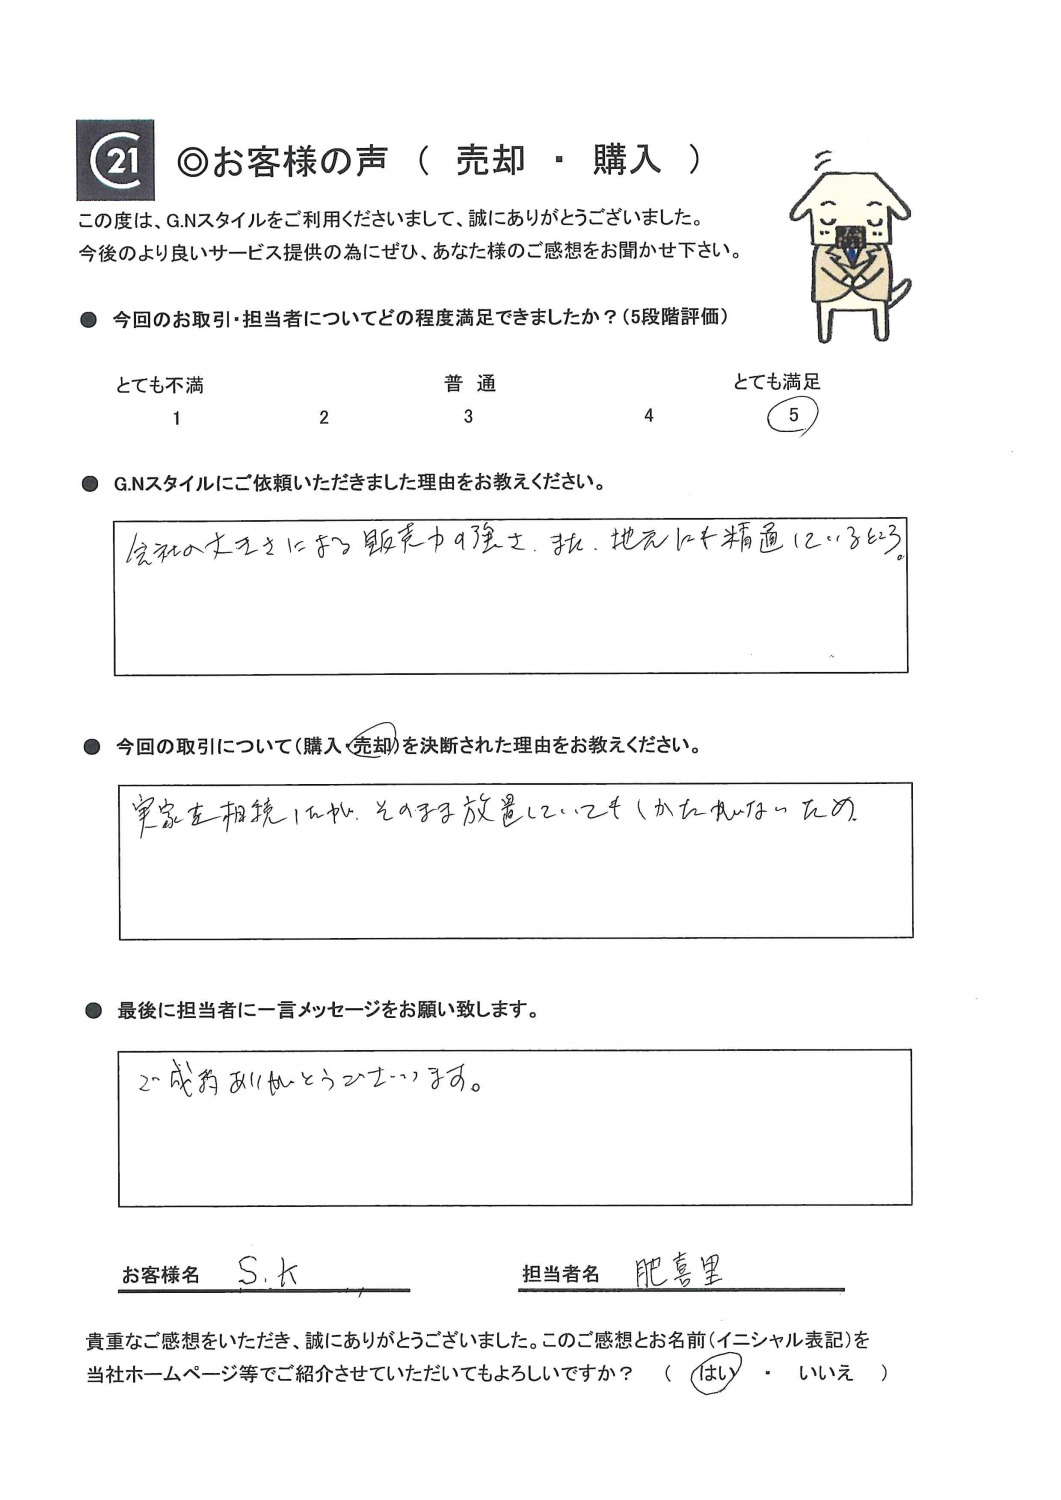 C21
◎お客様の声 ( 売却 ・ 購入 )
この度は、G.Nスタイルをご利用くださいまして、誠にありがとうございました。
今後のより良いサービス提供の為にぜひ、あなた様のご感想をお聞かせ下さい。
● 今回のお取引・担当者についてどの程度満足できましたか?(5段階評価)
とても不満 普 通 とても満足
1 2 3 4 5
● G.Nスタイルにご依頼いただきました理由をお教えください。
会社の大きさによる販売力の強さ、また、地元にも精通しているところ。
● 今回の取引について(購入・売却)を決断された理由をお教えください。
実家を相続したが、そのまま放置していてもしかたがないため
● 最後に担当者に一言メッセージをお願い致します。
ご成約ありがとうございます。
お客様名 S.K 担当者名 肥喜里
貴重なご感想をいただき、誠にありがとうございました。このご感想とお名前(イニシャル表記)を
当社ホームページ等でご紹介させていただいてもよろしいですか? ( はい ・ いいえ )